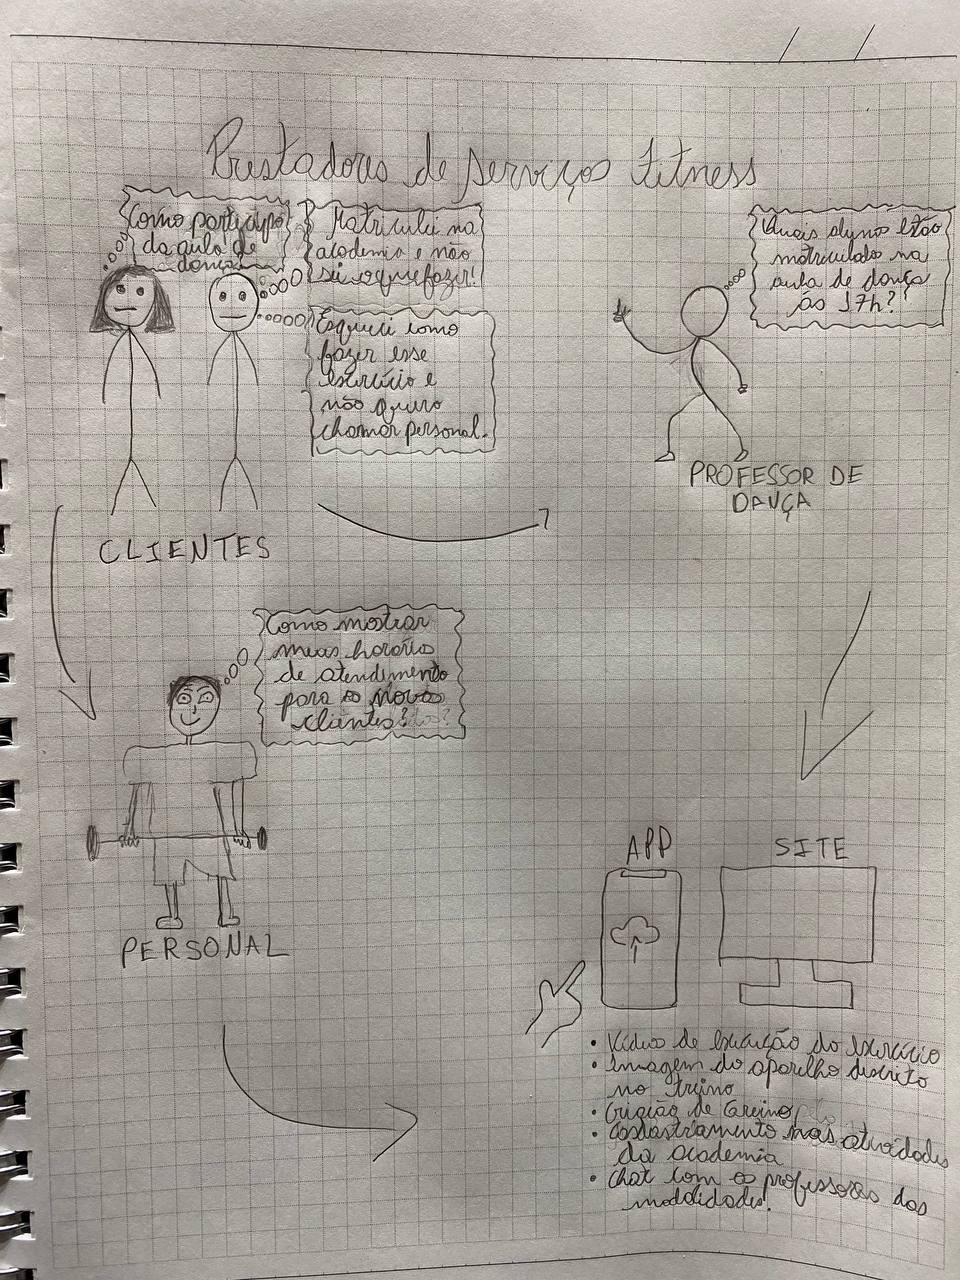 Prestadores de serviços Fitness
Como participo
da aula de
dança
Matriculei na
academia e não
sei o que fazer!
Esqueci como
fazer esse
exercício e
não quero
chamar personal.
CLIENTES
Quais alunos estão
matriculados na
aula de dança
às 17h?
PROFESSOR DE
DANÇA
Como mostrar
meus horários
de atendimento
para os novos
clientes?
PERSONAL
APP
SITE
• Vídeo de execução do exercício
• Imagem do aparelho descrito
no treino
• Criação de treino
• Cadastramento nas atividades
da academia
• Chat com os professores das
modalidades!